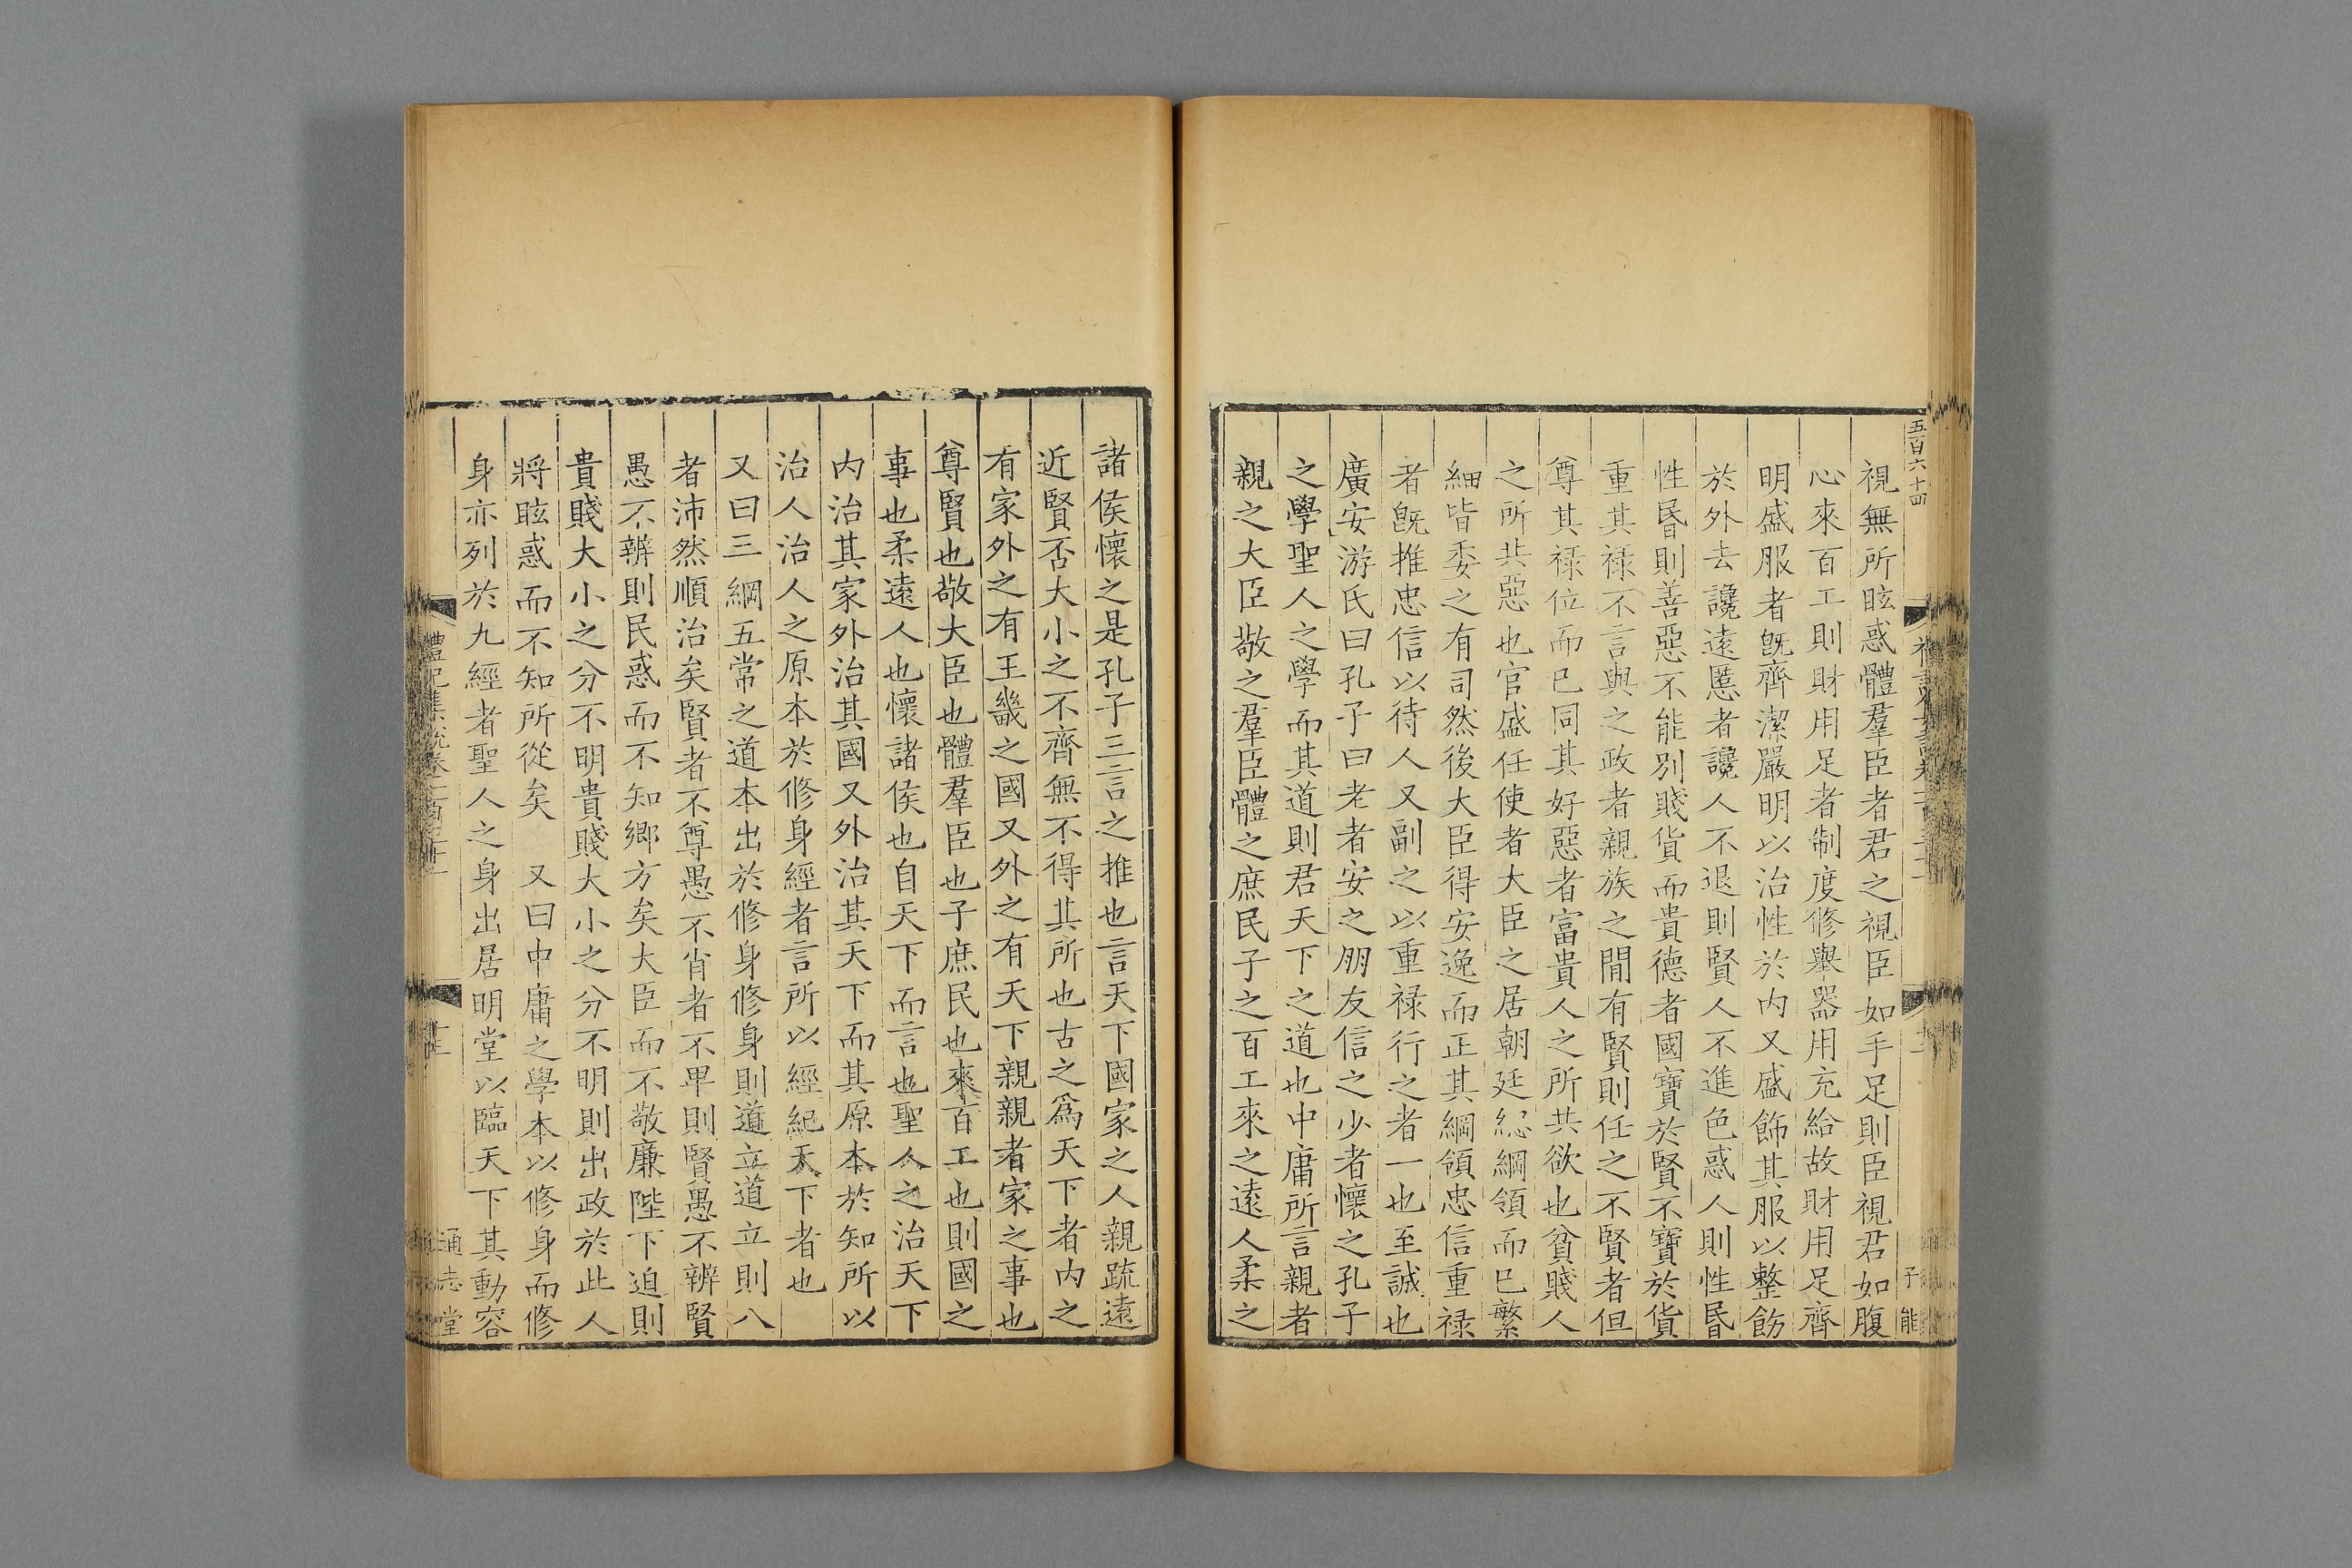 五百六十四
視無所眩惑體羣臣者君之視臣如手足則臣視君如腹
心來百工則財用足者制度修舉器用充給故財用足齊
明盛服者旣齊潔嚴明以治性於內又盛飾其服以整飭
於外去讒遠慝者讒人不退則賢人不進色惑人則性昬
性昬則善惡不能別賤貨而貴德者國寶於賢不寶於貨
重其祿不言與之政者親族之閒有賢則任之不賢者但
尊其祿位而已同其好惡者富貴人之所共欲也貧賤人
之所共惡也官盛任使者大臣之居朝廷緫綱領而已繁
細皆委之有司然後大臣得安逸而正其綱領忠信重祿
者旣推忠信以待人又副之以重祿行之者一也至誠也
廣安游氏曰孔子曰老者安之朋友信之少者懷之孔子
之學聖人之學而其道則君天下之道也中庸所言親者
親之大臣敬之羣臣體之庶民子之百工來之遠人柔之
子能
諸侯懷之是孔子三言之推也言天下國家之人親疏遠
近賢否大小之不齊無不得其所也古之爲天下者內之
有家外之有王畿之國又外之有天下親親者家之事也
尊賢也敬大臣也體羣臣也子庶民也來百工也則國之
事也柔遠人也懷諸侯也自天下而言也聖人之治天下
內治其家外治其國又外治其天下而其原本於知所以
治人治人之原本於修身經者言所以經紀天下者也
又曰三綱五常之道本出於修身修身則道立道立則八
者沛然順治矣賢者不尊愚不肖者不卑則賢愚不辨賢
愚不辨則民惑而不知鄉方矣大臣而不敬廉陛下迫則
貴賤大小之分不明貴賤大小之分不明則出政於此人
將眩惑而不知所從矣　又曰中庸之學本以修身而修
身亦列於九經者聖人之身出居明堂以臨天下其動容
通志堂